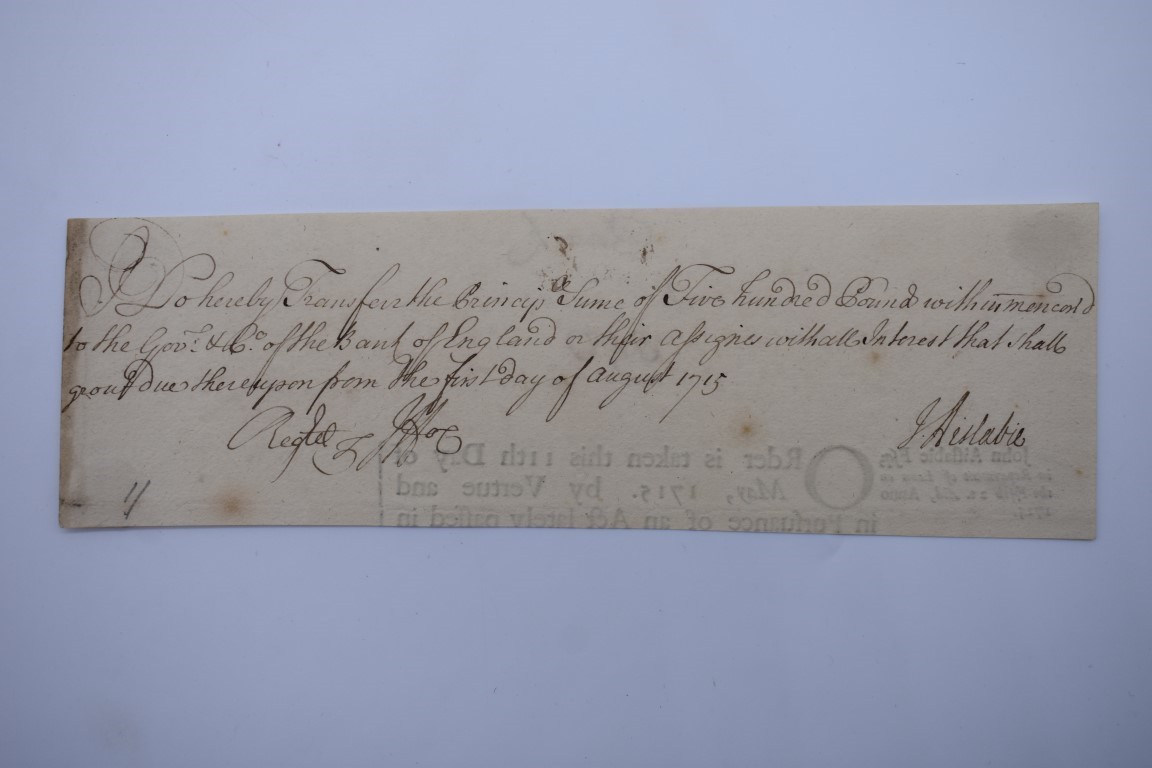 I Do hereby Transferr the Princip.ll Sume of Five hundred Pound within menc̄on'd
to the Gov.r & Co. of the Bank of England or their assignes with all Interest that shall
grow due thereupon from the first day of August 1715
Regted J. Aislabie
John Aislabie Esq;
ORder is taken this 11th Day of
May, 1715. by Vertue and
in Persuance of an Act lately passed in